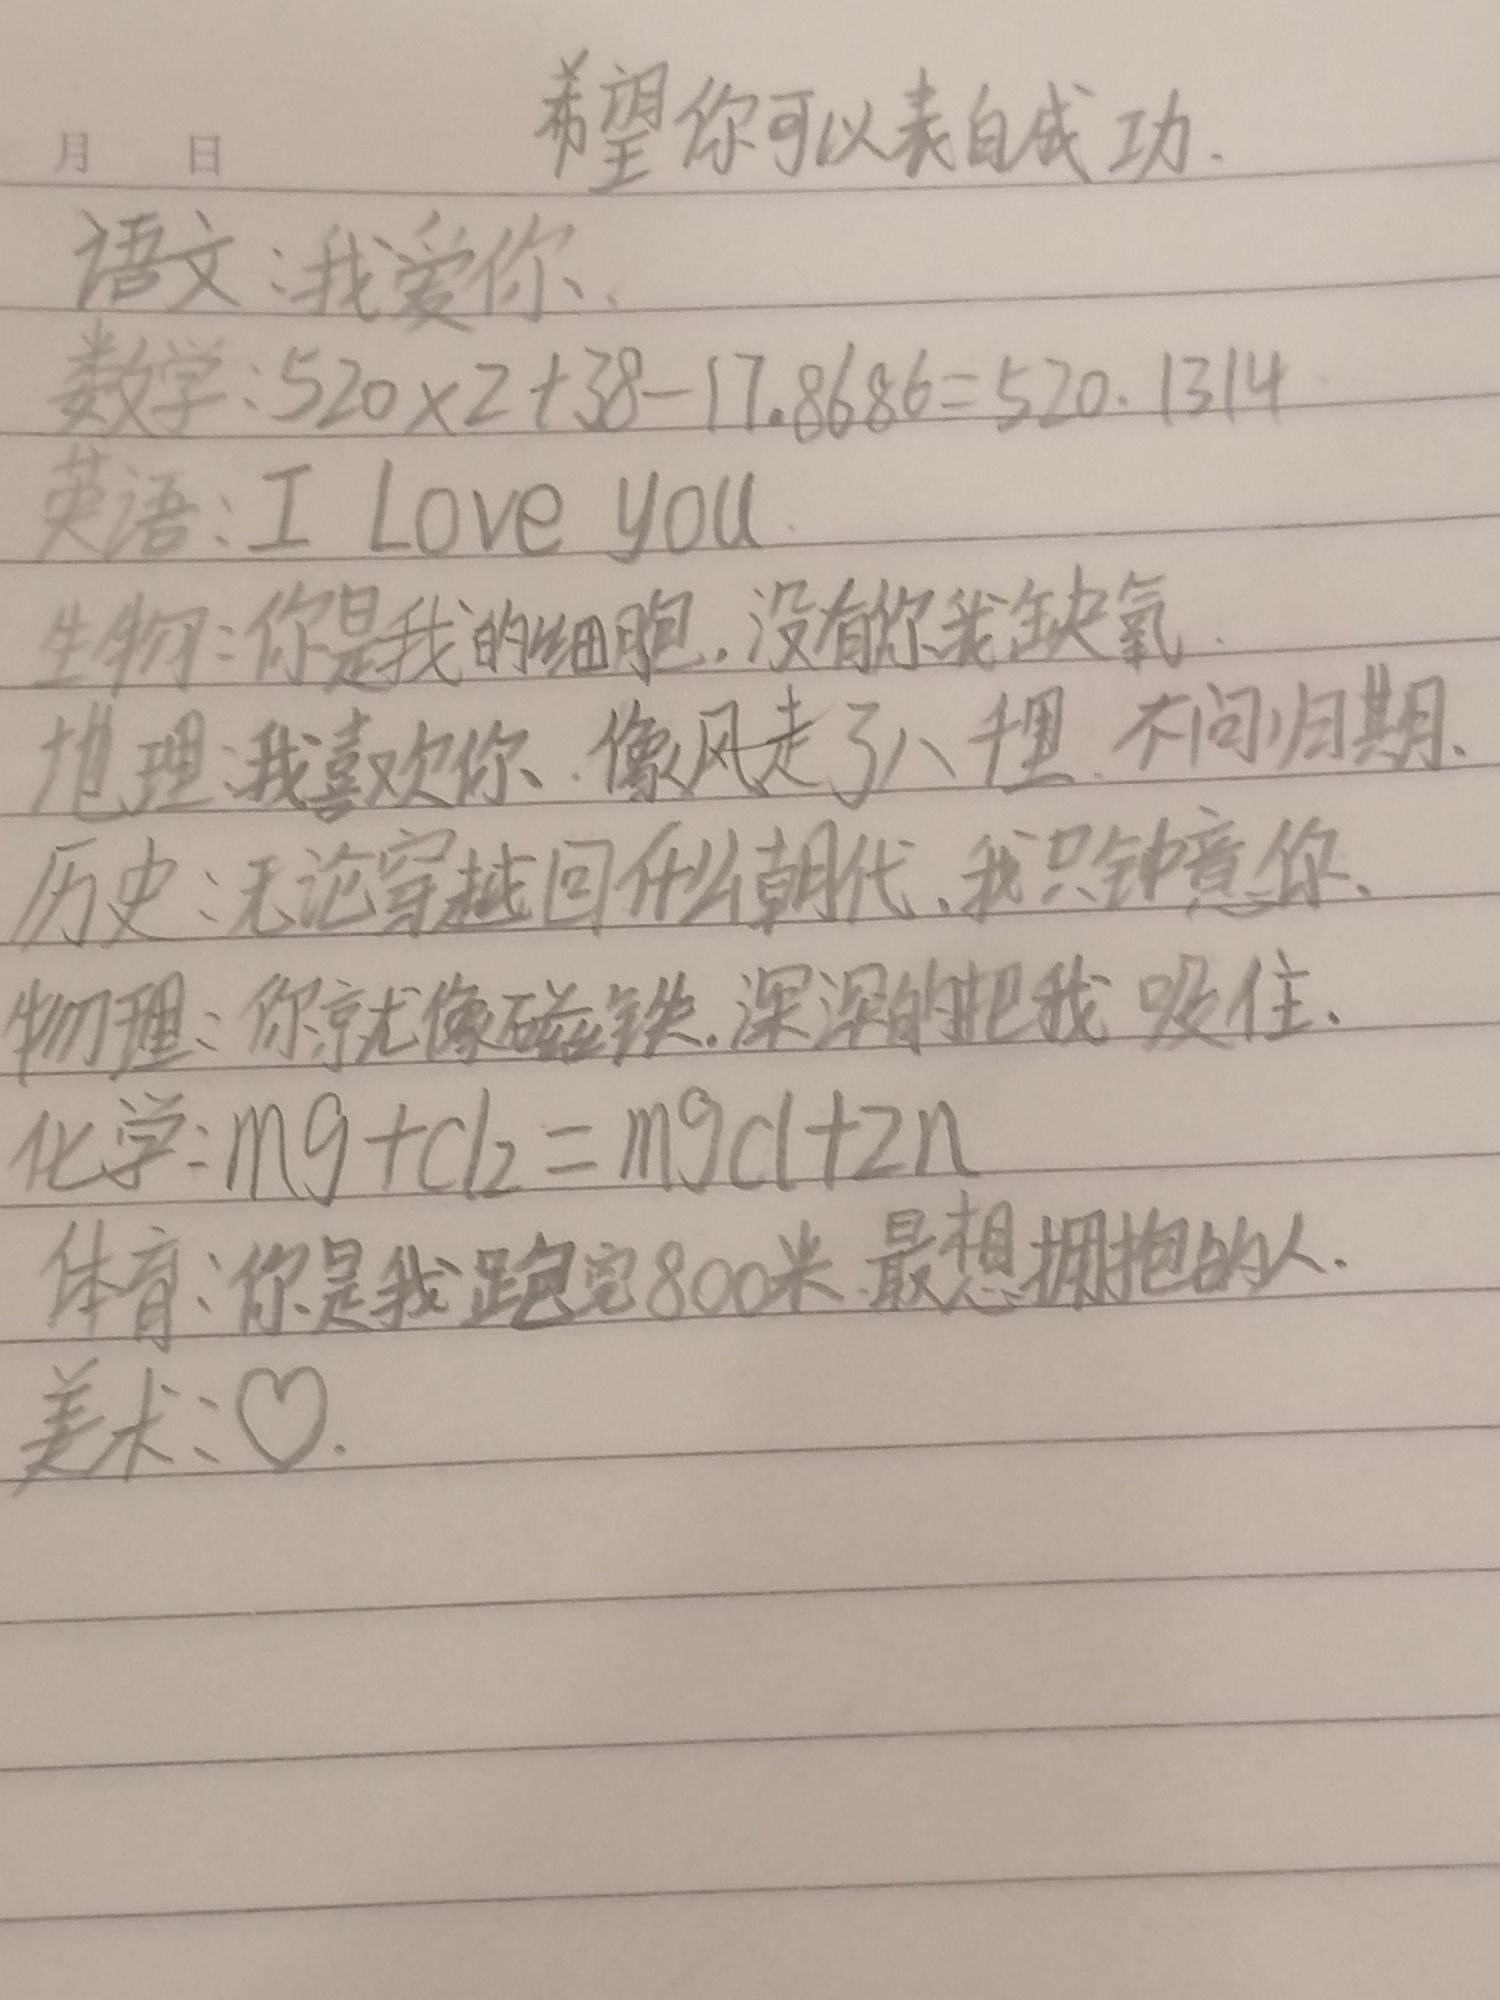 希望你可以表白成功.
月 日
语文:我爱你.
数学:520×2+38-17.8686=520.1314
英语:I Love you.
生物:你是我的细胞.没有你我缺氧.
地理:我喜欢你.像风走了八千里.不问归期.
历史:无论穿越回什么朝代.我只钟意你.
物理:你就像磁铁.深深的把我吸住.
化学:mg+cl₂=mgcl+zn
体育:你是我跑完800米.最想拥抱的人.
美术:♡.